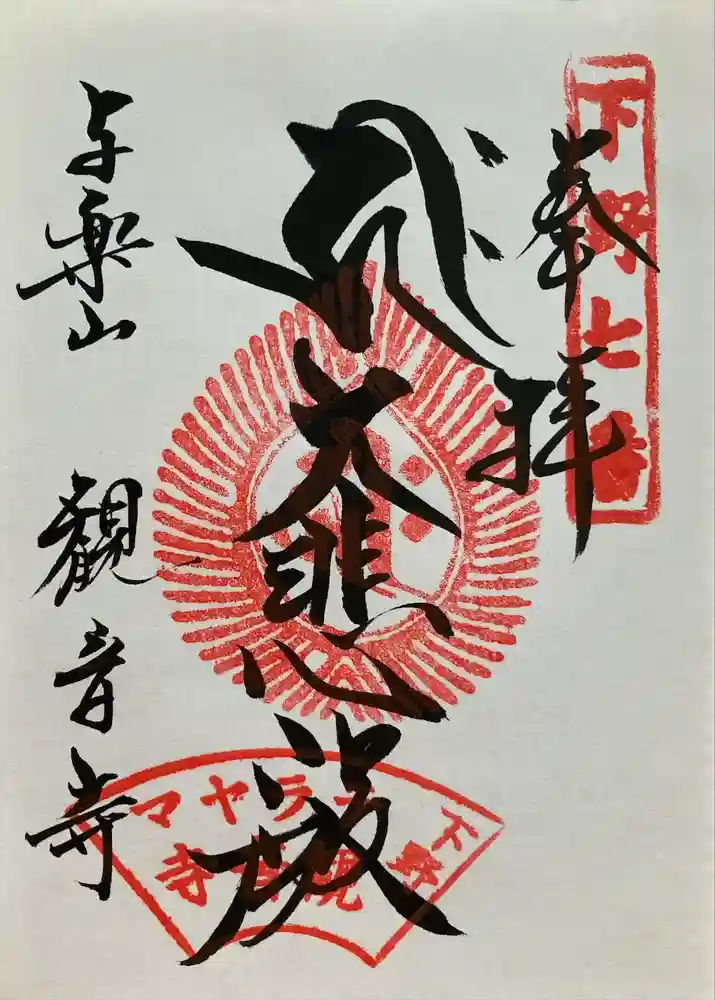 下野七番
奉拝
大悲殿
与楽山
観音寺
下野
テラヤマ
観音寺